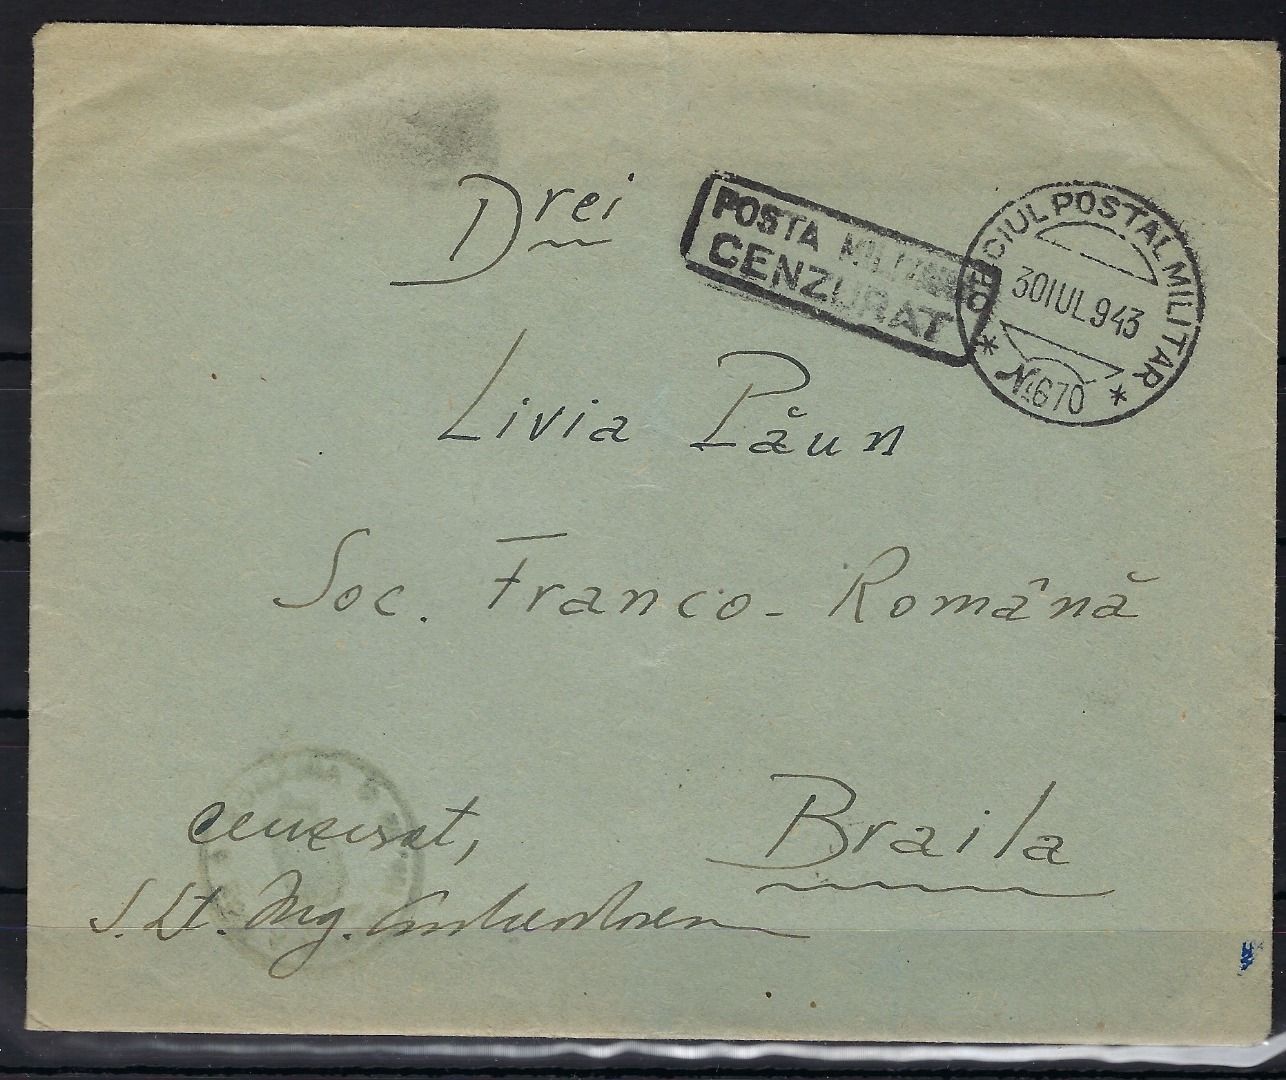 Drei
POSTA MILITARA
CENZURAT
OFICIUL POSTAL MILITAR
30 IUL 943
* No 670 *
Livia Păun
Soc. Franco-Română
Braila
cenzurat,
S. Lt. Ing.
ROMANIA